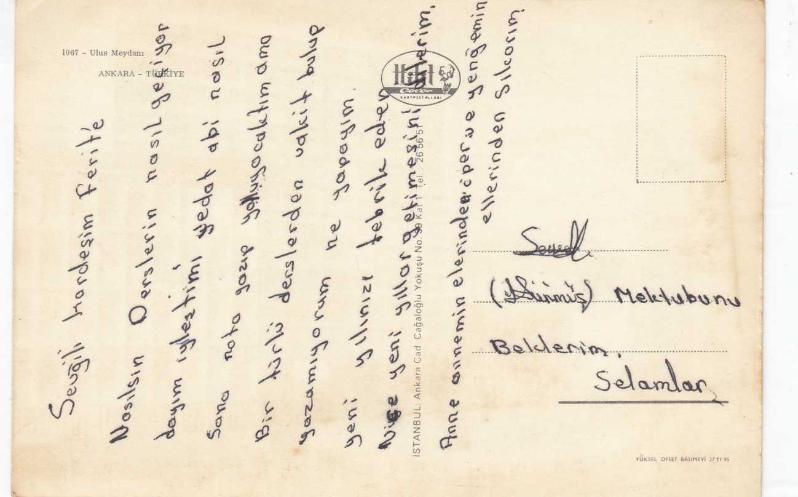 1067 - Ulus Meydanı
ANKARA - TÜRKİYE
Sevgili kardeşim Ferit'e
Nasılsın Derslerin nasıl geçiyor
dayım iyleştimi vedat abi nasıl
Sana nota yazıp yolluyacaktım ama
Bir türlü derslerden vakit bulup
yazamıyorum ne yapayım.
yeni yılınızı tebrik eder
Nice yeni yıllar getimesini dilerim.
Anne annemin elerinden öper ve yengemin
ellerinden Sıkarım
Hitit
Color
KARTPOSTALLARI
İSTANBUL: Ankara Cad. Cağaloğlu Yokuşu No. Kat 1 Tel.: 26 56 5
Mektubunu
Beklerim.
Selamlar
YÜKSEL OFSET BASIMEVİ 27 11 95